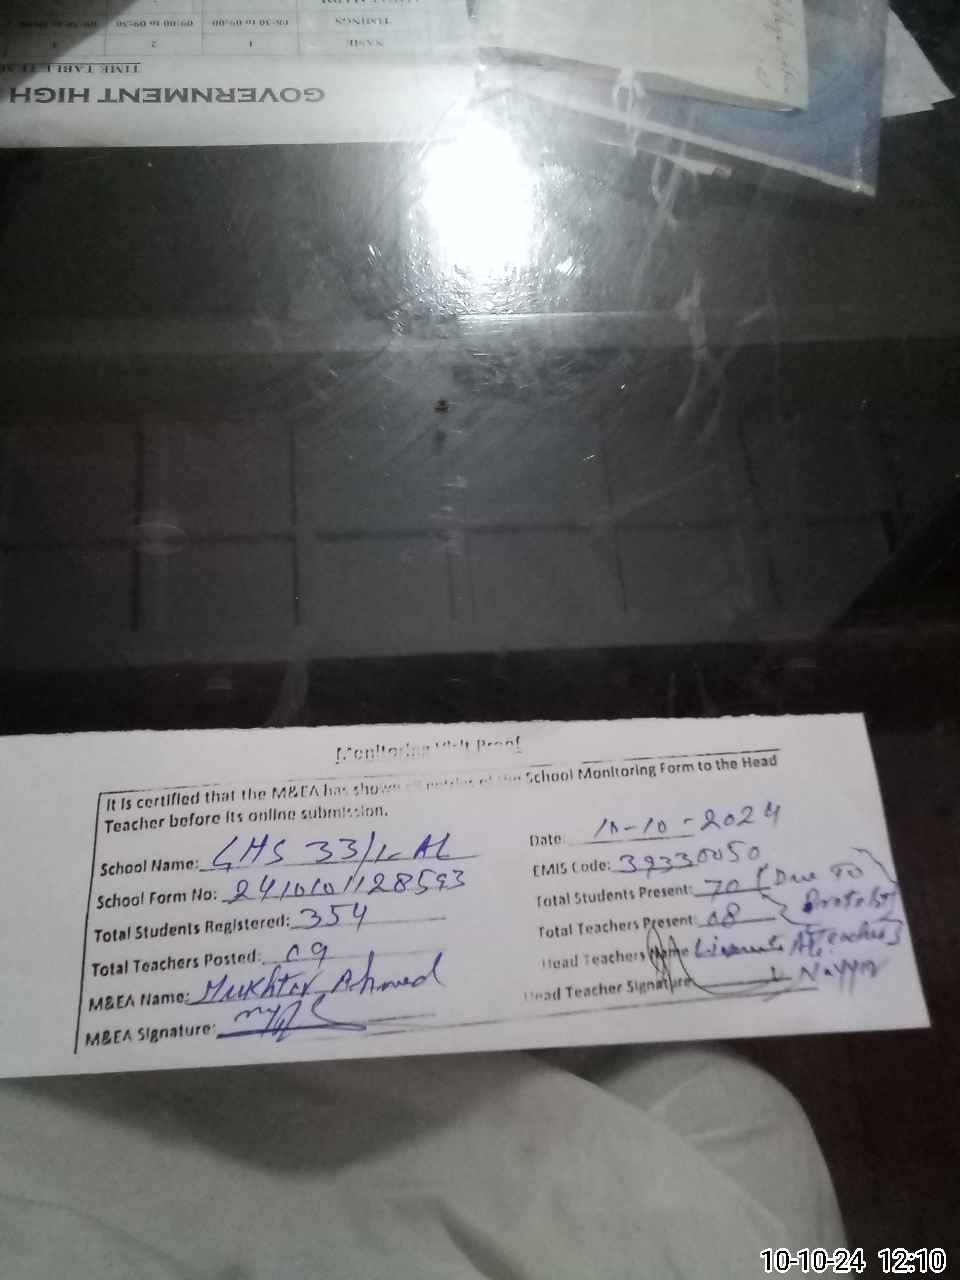 TIME TABLE
GOVERNMENT HIGH
NAME 1 2
TIMINGS 08:30 to 09:00 09:00 to 09:30
Monitoring Visit Proof
It is certified that the M&EA has shown all entries of the School Monitoring Form to the Head
Teacher before its online submission.
School Name: GHS 33/
Date: 10-10-2024
School Form No:
EMIS Code: 39330050
Total Students Registered: 354
Total Students Present: 70 (Due To
Total Teachers Posted: 09
Total Teachers Present: 08
M&EA Name: Mukhtar Ahmed
Head Teachers Name
M&EA Signature:
Head Teacher Signature
Teachers
Nayyar
10-10-24 12:10